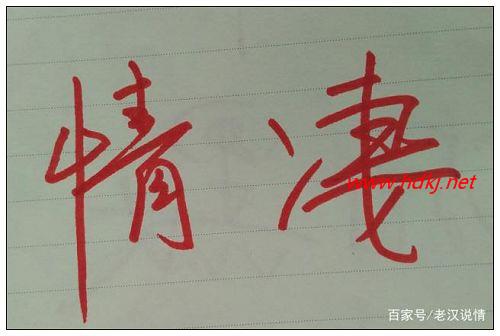 情凄
www.hdkj.net
百家号/老汉说情